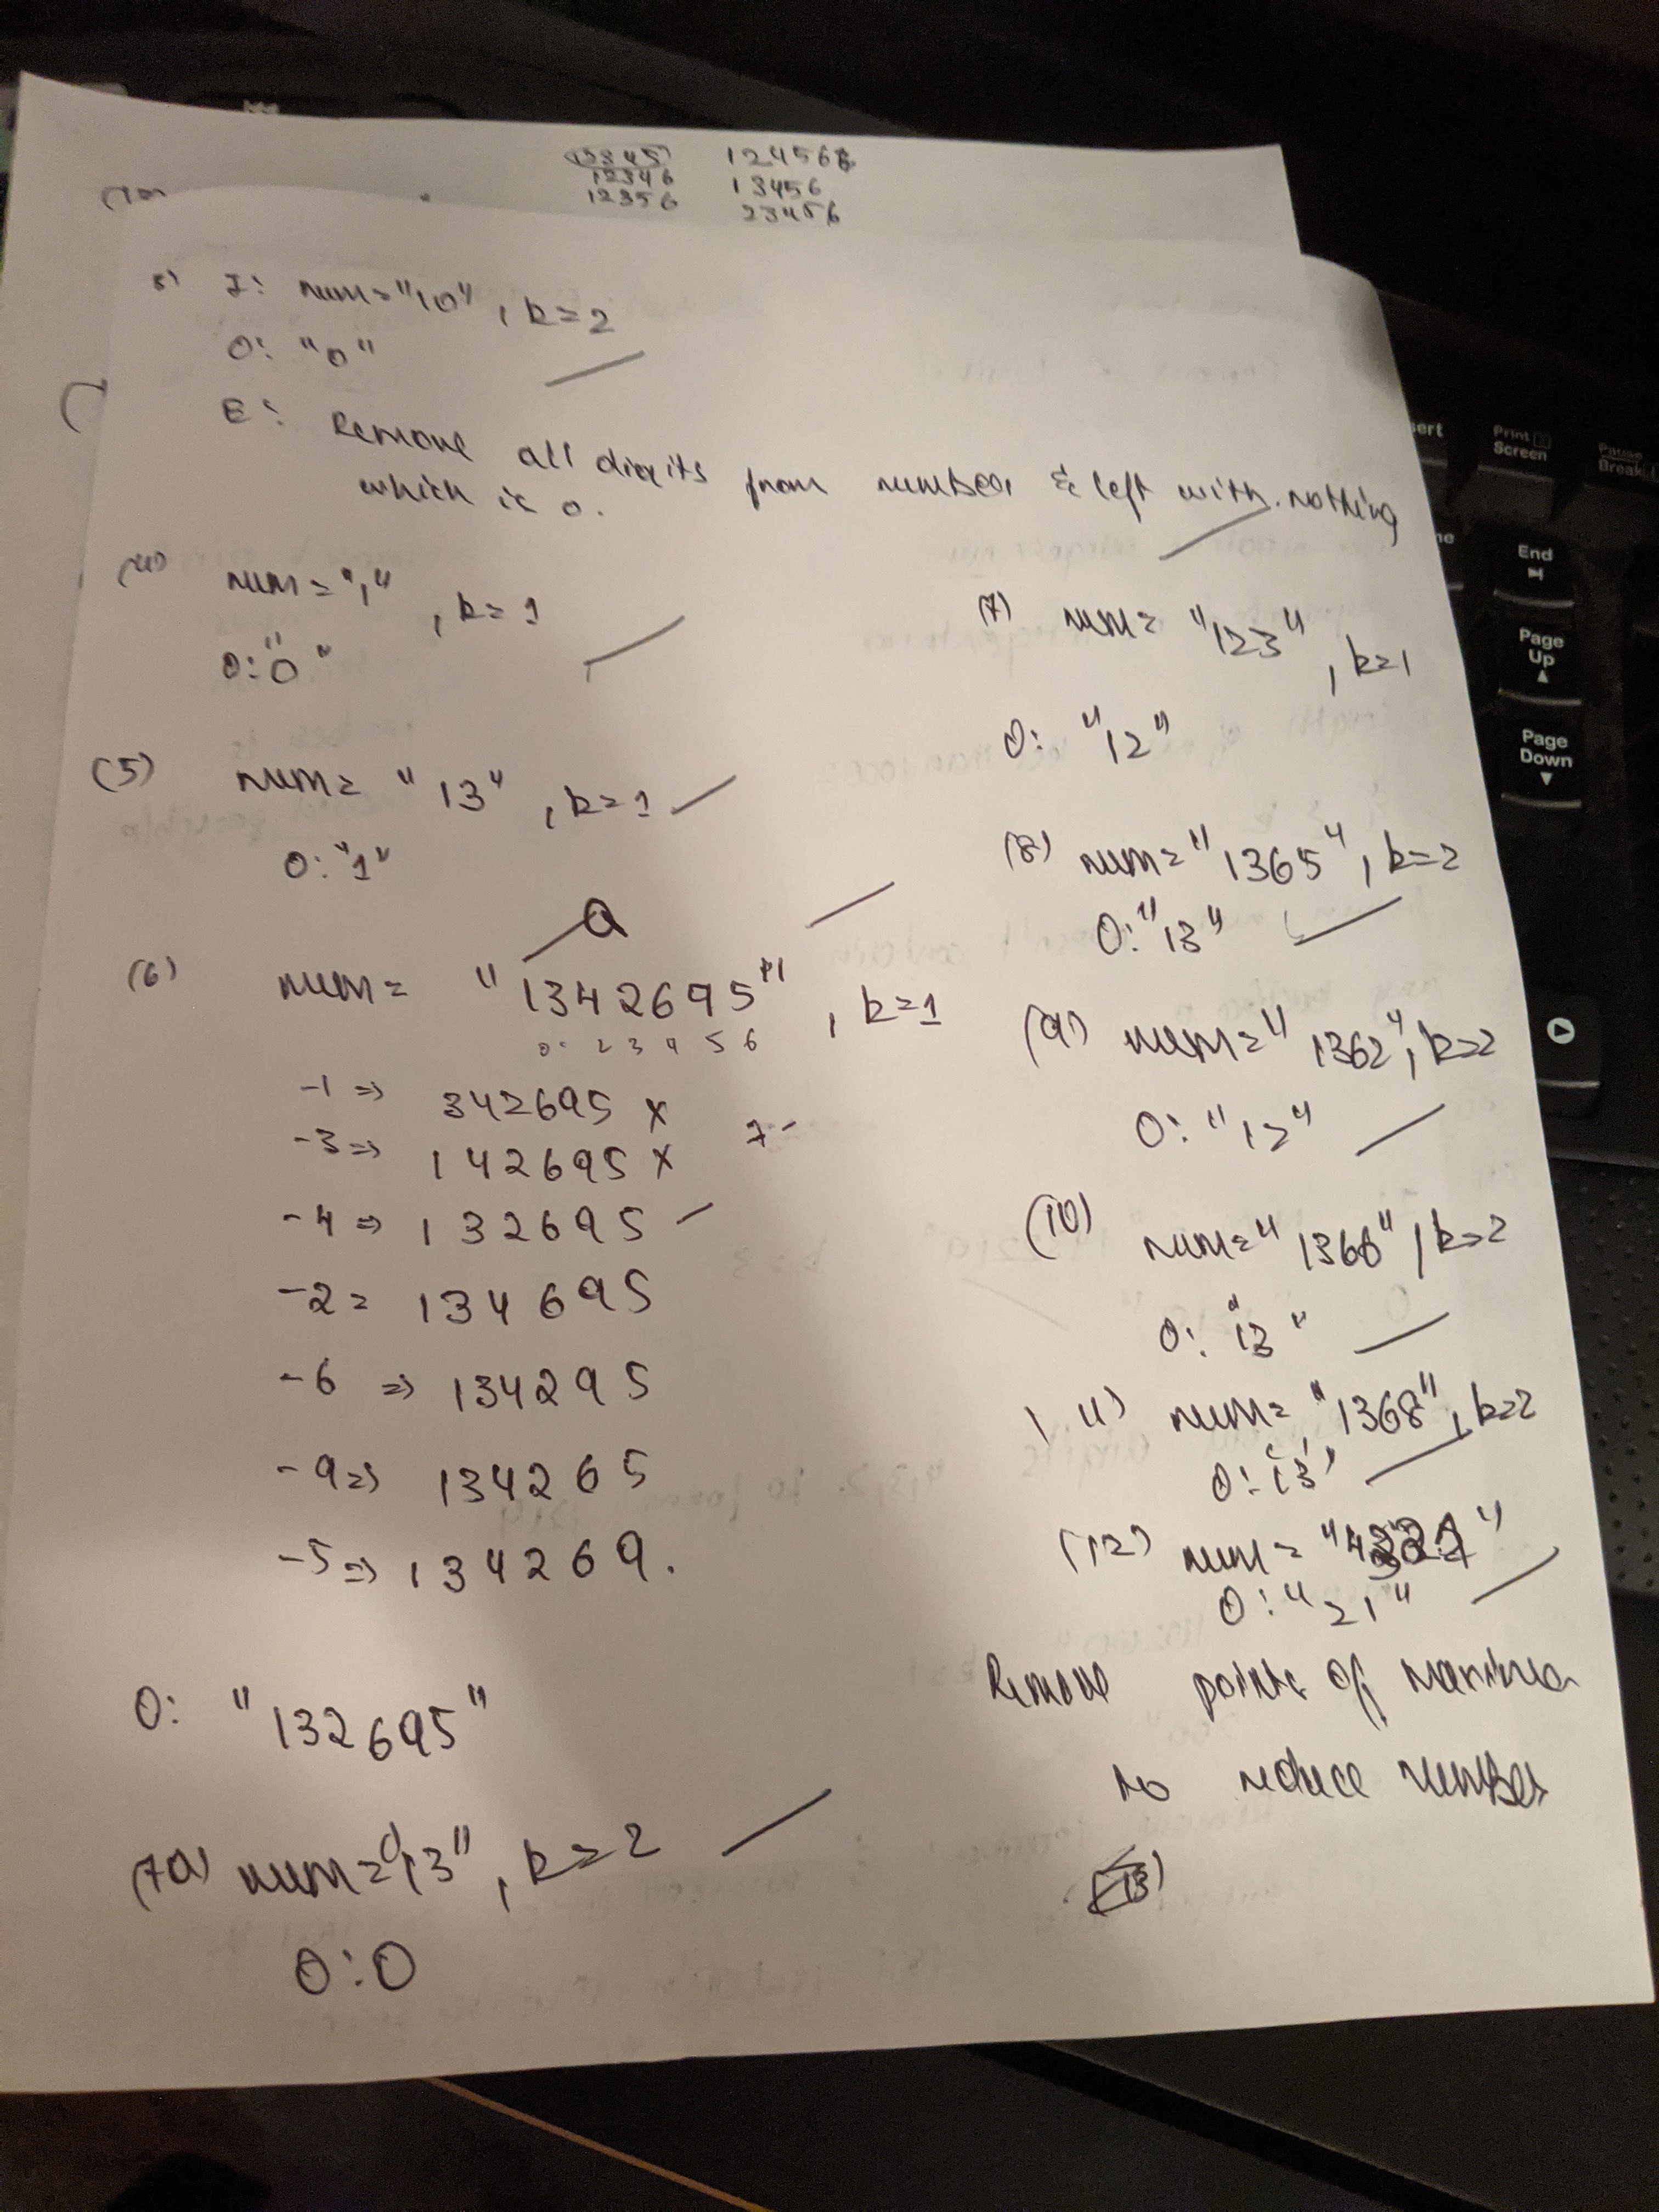 12345
12346
12356
124568
13456
23456
3) I: num="10", k=2
O: "0"
E: Remove all digits from number & left with nothing
which is 0.
(4) num="1", k=1
O: "0"
(5) num= "13", k=1
O: "1"
(6) num= "1342695", k=1
-1 => 342695 x
-3 => 142695 x
-4 => 132695
-2 = 134695
-6 => 134295
-9 => 134265
-5 => 134269.
O: "132695"
(7a) num="13", k=2
O: 0
(7) num= "123", k=1
O: "12"
(8) num="1365", k=2
O: "13"
(9) num="1362", k=2
O: "12"
(10) num="1366", k=2
O: "13"
11) num="1368", k=2
O: "13"
(12) num=
O: "21"
Remove points of maxima
to reduce number
13)
sert
Print Screen
Pause
Break
End
Page Up
Page Down